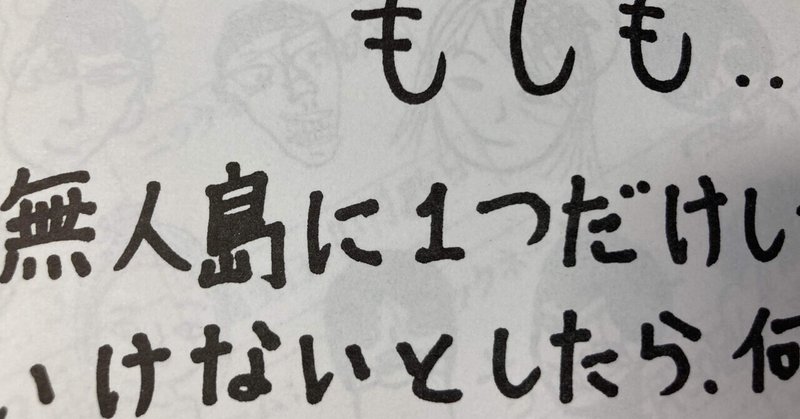 もしも..
無人島に1つだけし
いけないとしたら、何